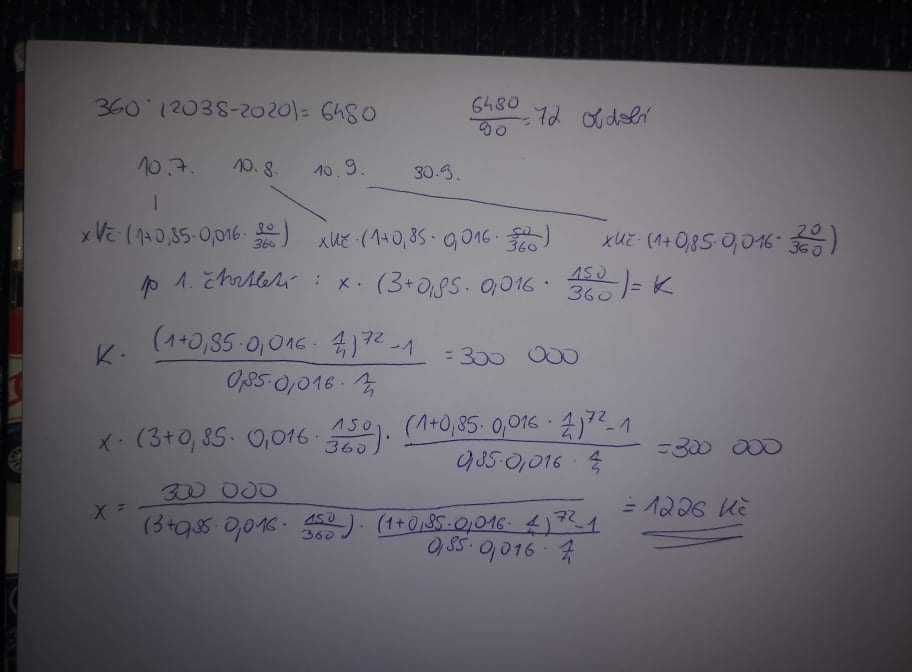 360 · (2038-2020) = 6480   6480/90 = 72 období
10.7.   10.8.   10.9.   30.9.
x Kč · (1+0,85 · 0,016 · 80/360)   x Kč · (1+0,85 · 0,016 · 50/360)   x Kč · (1+0,85 · 0,016 · 20/360)
p 1. čtvrtletí : x · (3+0,85 · 0,016 · 150/360) = K
K · ((1+0,85 · 0,016 · 1/4)^72 - 1)/(0,85 · 0,016 · 1/4) = 300 000
x · (3+0,85 · 0,016 · 150/360) · ((1+0,85 · 0,016 · 1/4)^72 - 1)/(0,85 · 0,016 · 1/4) = 300 000
x = 300 000/((3+0,85 · 0,016 · 150/360) · ((1+0,85 · 0,016 · 1/4)^72 - 1)/(0,85 · 0,016 · 1/4)) ≐ 1226 Kč